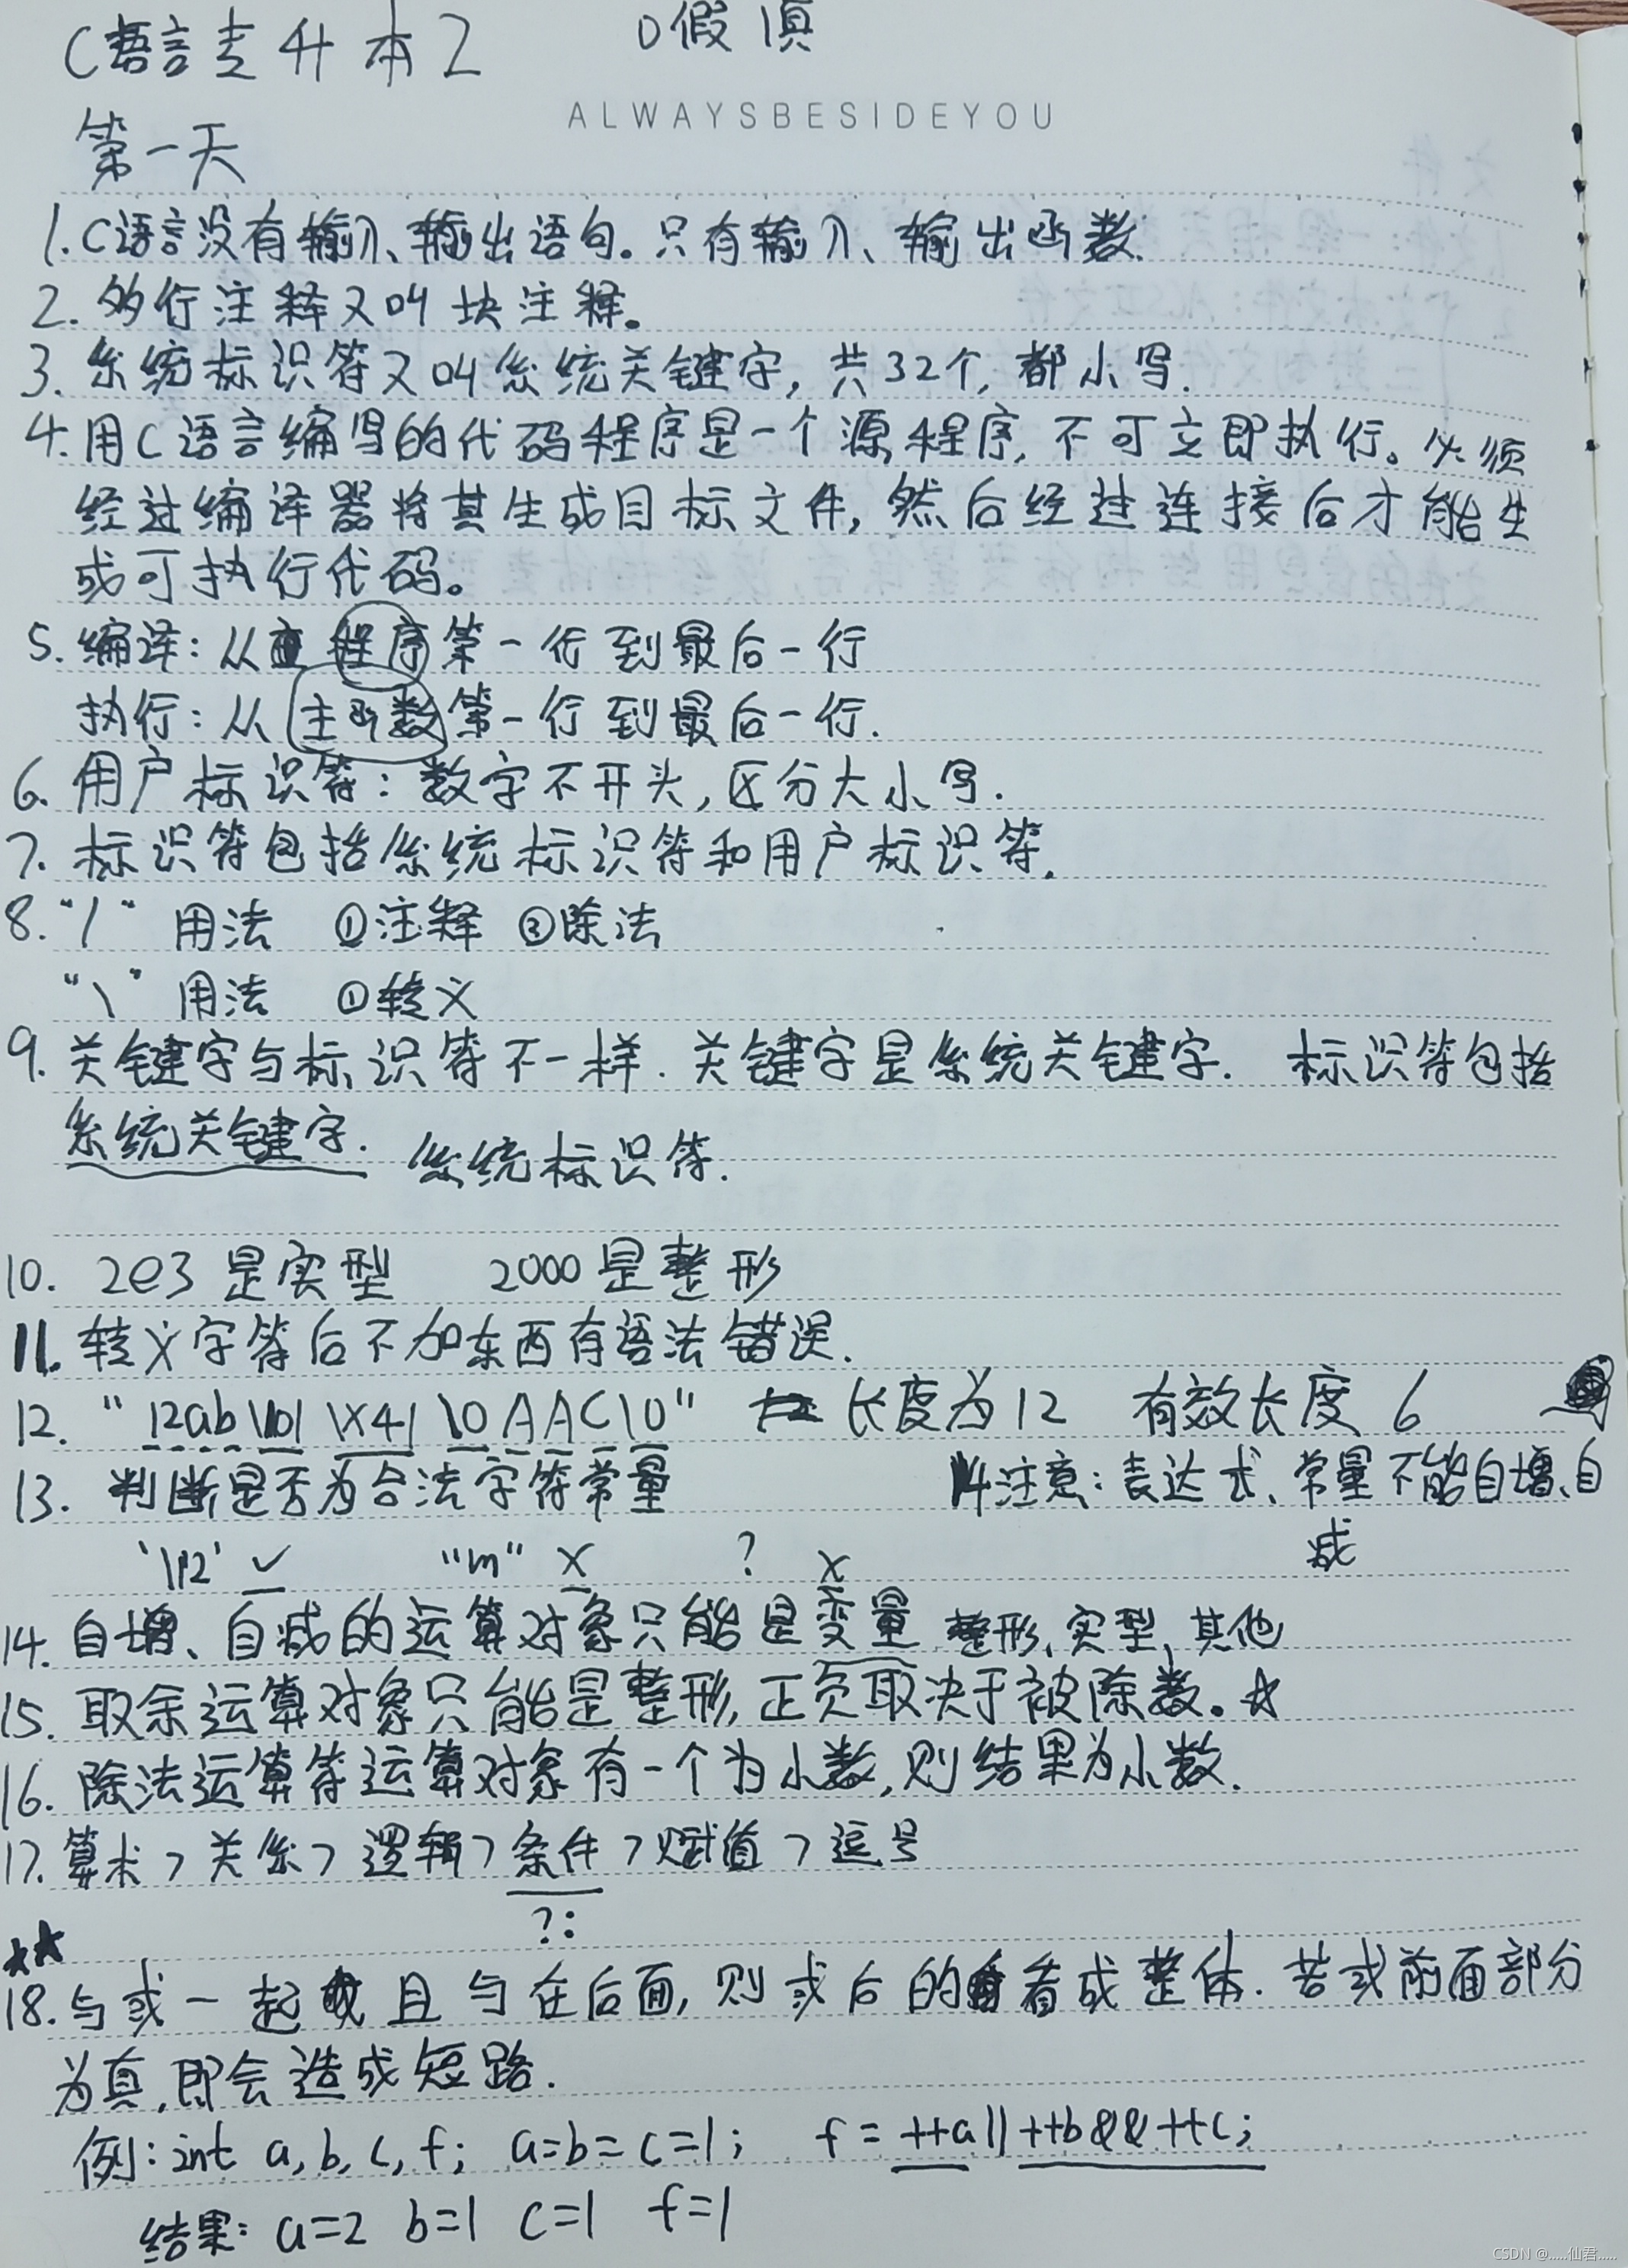 C语言专升本2 0假 1真
ALWAYSBESIDEYOU
第一天
1.C语言没有输入、输出语句。只有输入、输出函数.
2. 多行注释又叫块注释。
3. 系统标识符又叫系统关键字,共32个,都小写.
4.用C语言编写的代码程序是一个源程序,不可立即执行。必须
经过编译器将其生成目标文件,然后经过连接后才能生
成可执行代码。
5.编译:从程序第一行到最后一行
执行:从主函数第一行到最后一行.
6. 用户标识符:数字不开头,区分大小写.
7. 标识符包括系统标识符和用户标识符.
8. "/" 用法 ①注释 ②除法
"\" 用法 ①转义
9. 关键字与标识符不一样.关键字是系统关键字. 标识符包括
系统关键字. 系统标识符.
10. 2e3是实型 2000是整形
11. 转义字符后不加东西有语法错误.
12. "12ab\101\x41\0AAC\0" 长度为12 有效长度6
13. 判断是否为合法字符常量 14注意:表达式、常量不能自增、自
减
'\12' ✓ "m" X ? X
14. 自增、自减的运算对象只能是变量 整形、实型、其他
15. 取余运算对象只能是整形,正负取决于被除数。☆
16. 除法运算符运算对象有一个为小数,则结果为小数.
17. 算术>关系>逻辑>条件>赋值>逗号
?:
★★
18.与或一起 且与在后面,则或后的看成整体.若或前面部分
为真,即会造成短路.
例:int a,b,c,f; a=b=c=1; f=++a||++b&&++c;
结果: a=2 b=1 c=1 f=1
CSDN @.....仙君.....